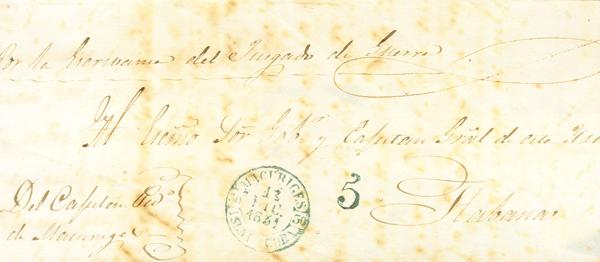 Por la Escribania del Juzgado de Guerra
Al Escmo Sor Gobor y Capitan Gral de esta Isla
Habana
Del Capitan Pdo
de Macuriges
MACURIGES
12
DIC.
1851
ISLA CUBA
5